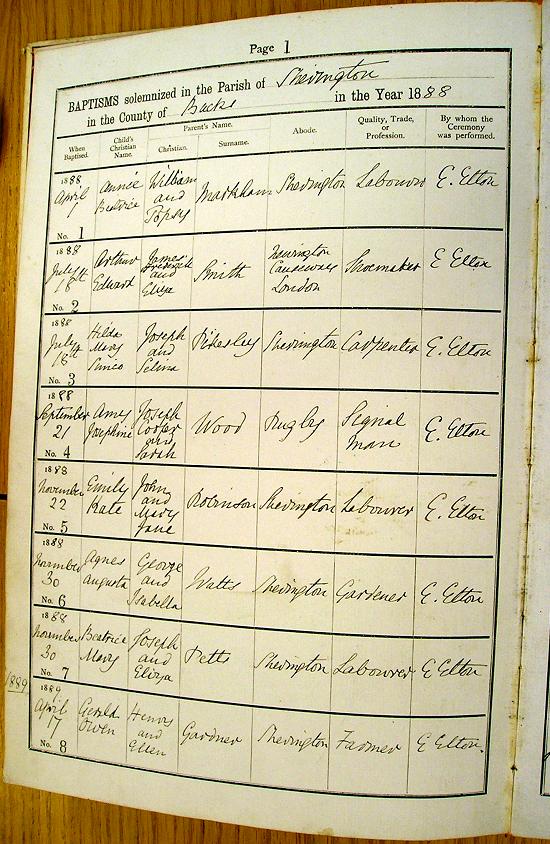 Page 1
BAPTISMS solemnized in the Parish of Sherington
in the County of Bucks in the Year 1888
When Baptised. Child's Christian Name. Parent's Name. Christian. Surname. Abode. Quality, Trade, or Profession. By whom the Ceremony was performed.
1888 April 1 Annie Beatrice William and Topsy Markham Sherington Labourer E. Elton
No. 1
1888 July 18th Arthur Edward James Frederick and Eliza Smith Newington Causeway London Shoemaker E Elton
No. 2
1888 July 18th Hilda Mary Joseph and Selina Pikesley Sherington Carpenter E. Elton
No. 3
1888 September 21 Amy Josephine Joseph and Sarah Wood Rugby Signal man E. Elton
No. 4
1888 November 22 Emily Kate John and Mary Jane Robinson Sherington Labourer E. Elton
No. 5
1888 November 30 Agnes Augusta George and Isabella Watts Sherington Gardener E. Elton
No. 6
1888 November 30 Beatrice Mary Joseph and Eliza Petts Sherington Labourer E Elton
No. 7
1889
1889 April 17 Gerald Owen Henry and Ellen Gardner Sherington Farmer E Elton.
No. 8